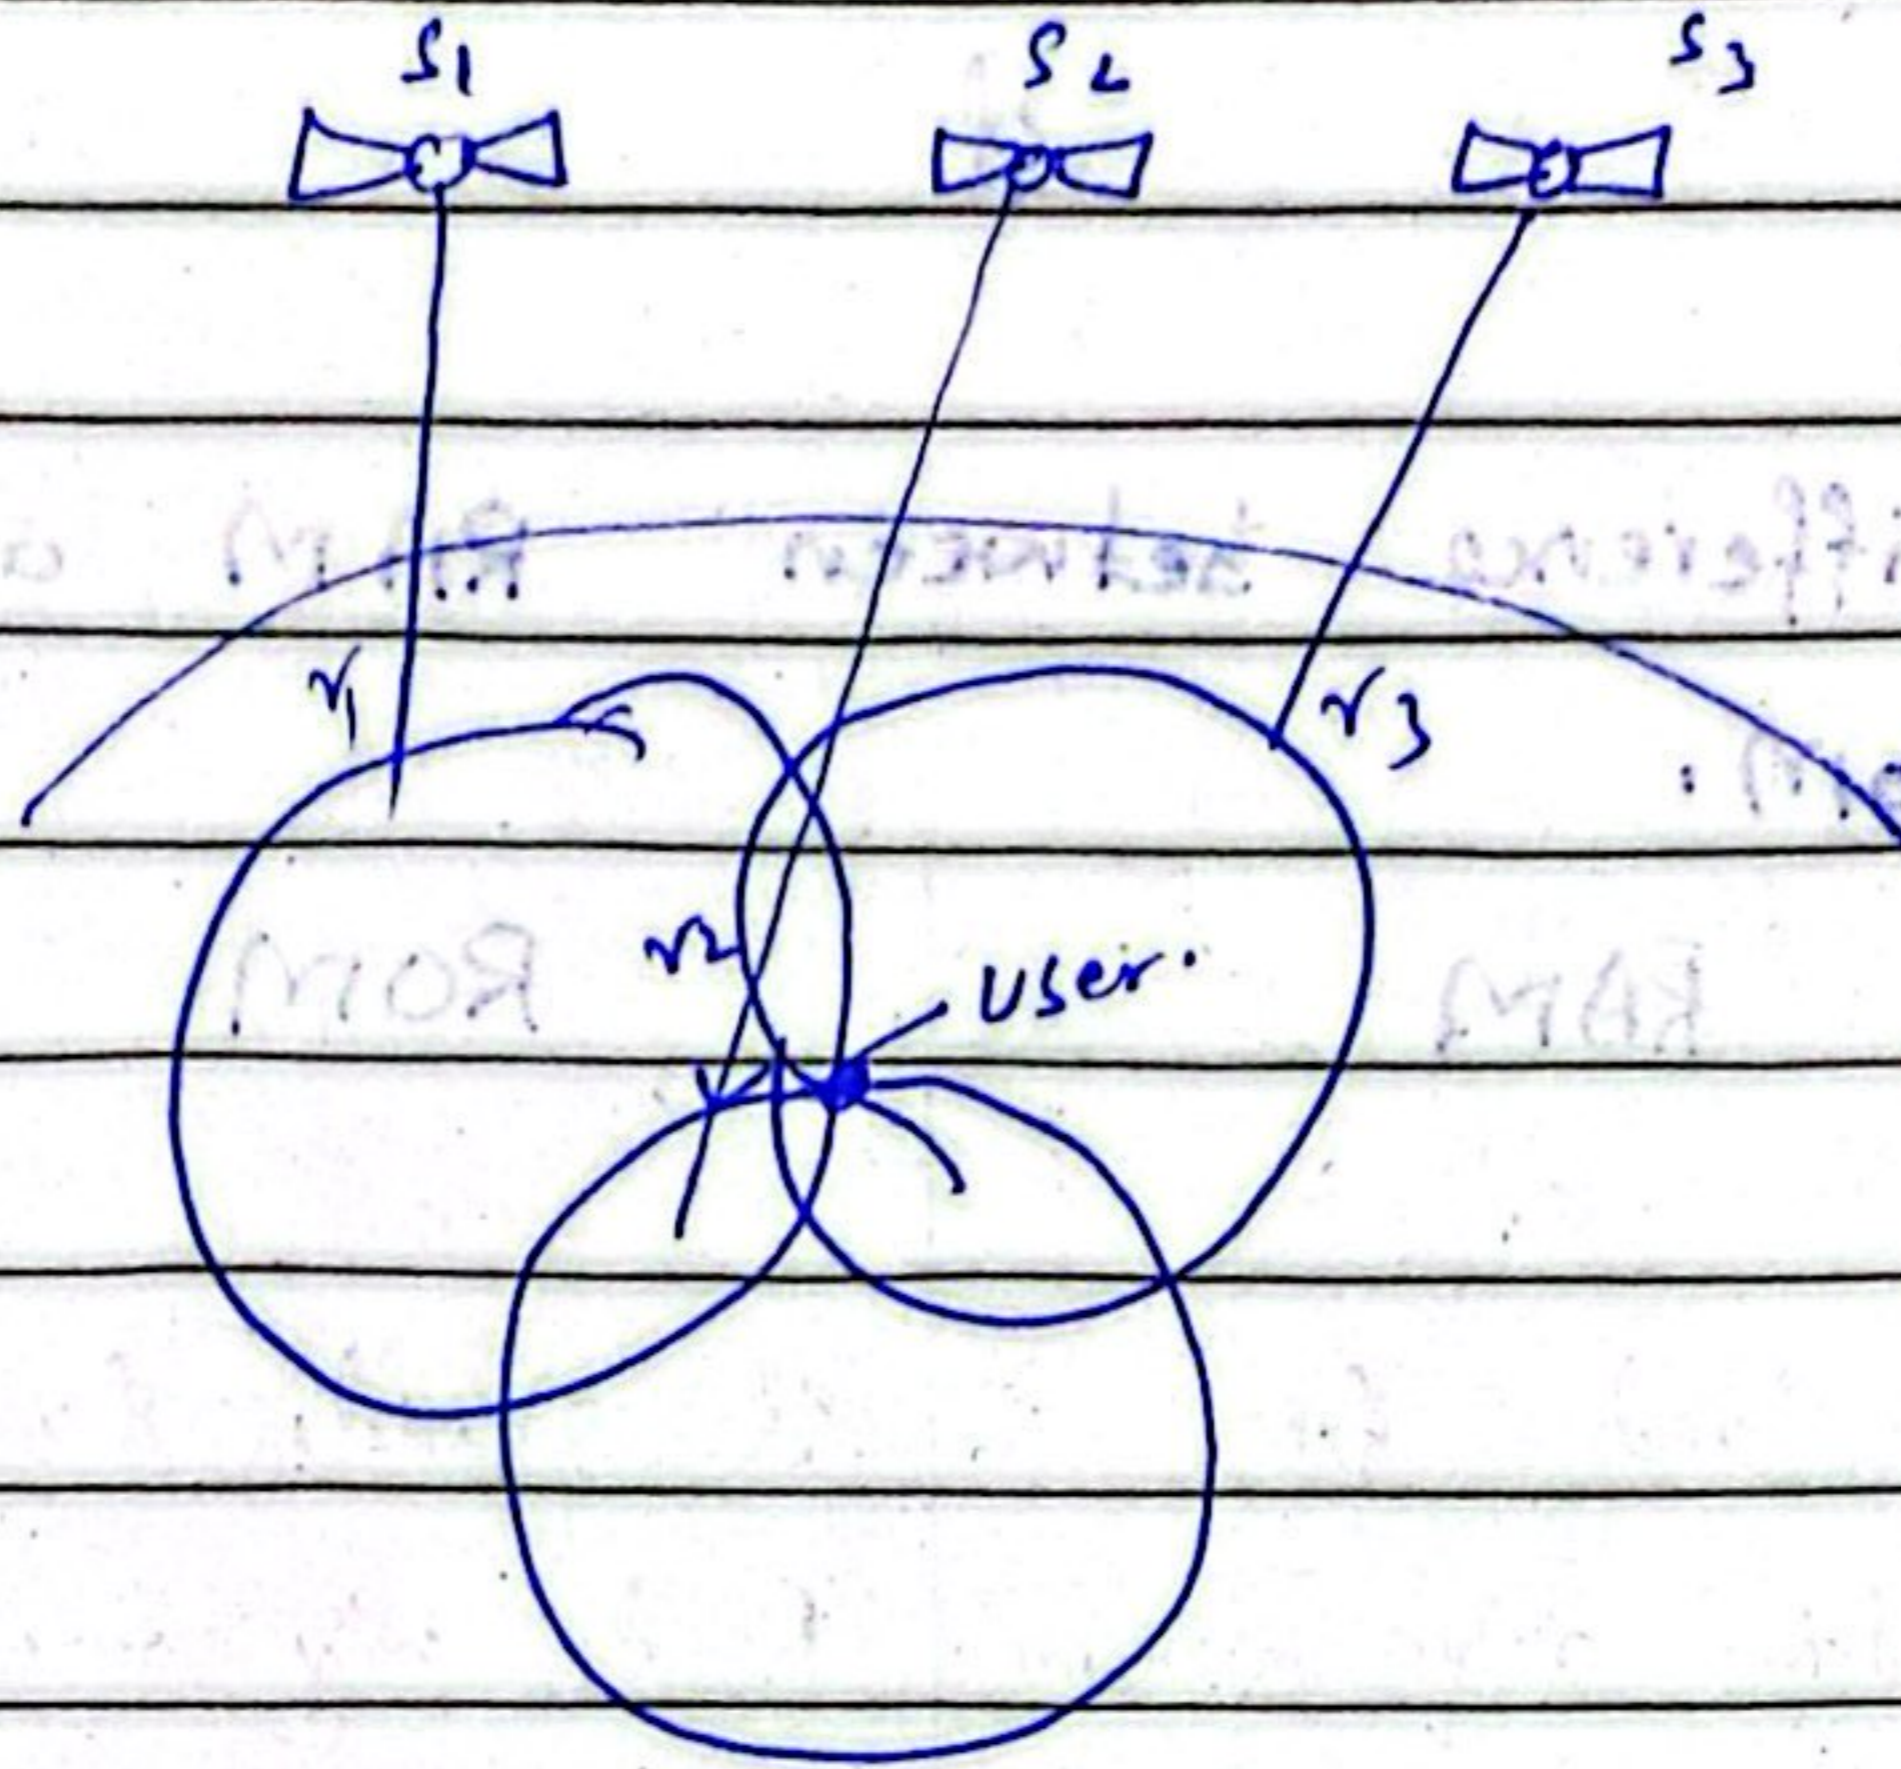 S1 S2 S3
r1 r3
r2 User.